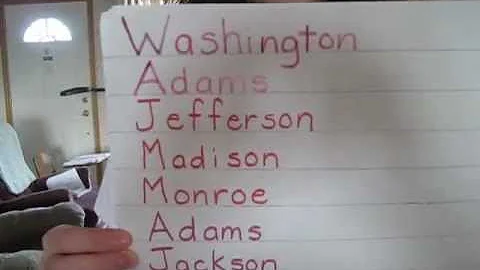 Washington
Adams
Jefferson
Madison
Monroe
Adams
Jackson